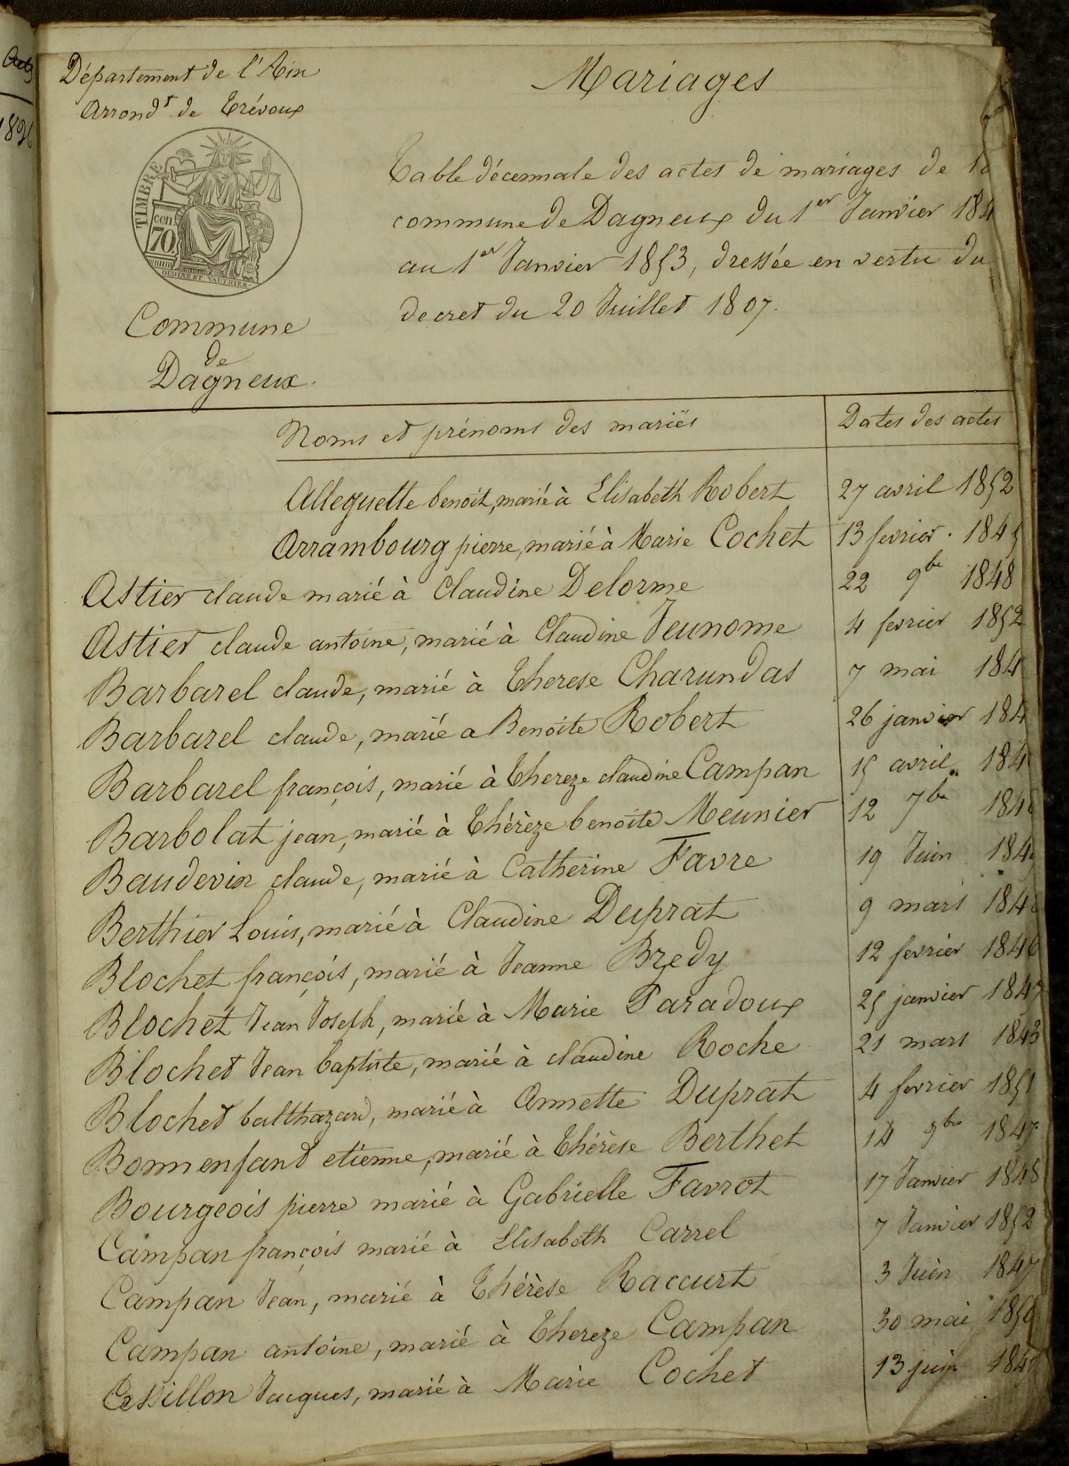 Actes
Département de l'Ain
Arrondt de Trévoux
TIMBRE
cen
70
Commune
de
Dagneux.
Mariages
Table décennale des actes de mariages de la
commune de Dagneux du 1er Janvier 184
au 1er Janvier 1853, dressée en vertu du
decret du 20 Juillet 1807.
Noms et prénoms des mariés Dates des actes
Alleguette benoit, marié à Elisabeth Robert 27 avril 1852
Arrambourg pierre, marié à Marie Cochet 13 fevrier . 1845
Astier claude marié à Claudine Delorme 22 9bre 1848
Astier claude antoine, marié à Claudine Jeunome 4 fevrier 1852
Barbarel claude, marié à Therese Charundas 7 mai 184
Barbarel claude, marié a Benoite Robert 26 janvier 184
Barbarel françois, marié à Thereze claudine Campan 15 avril 184
Barbolat jean, marié à Thérèze benoite Meunier 12 7bre 184
Baudevin claude, marié à Catherine Favre 19 Juin 184
Berthier Louis, marié à Claudine Duprat 9 mars 184
Blochet françois, marié à Jeanne Bredy 12 fevrier 1846
Blochet Jean Joseph, marié à Marie Paradoux 25 janvier 1847
Blochet Jean baptiste, marié à claudine Roche 21 mars 1843
Blochet balthazard, marié à Annette Duprat 4 fevrier 1851
Bonnenfant etienne, marié à Thérèse Berthet 14 9bre 1847
Bourgeois pierre marié à Gabrielle Favrot 17 Janvier 1848
Campan françois marié à Elisabeth Carrel 7 Janvier 1852
Campan Jean, marié à Thérèse Raccurt 3 Juin 1847
Campan antoine, marié à Thereze Campan 30 mai 1850
Cessillon Jacques, marié à Marie Cochet 13 juin 184